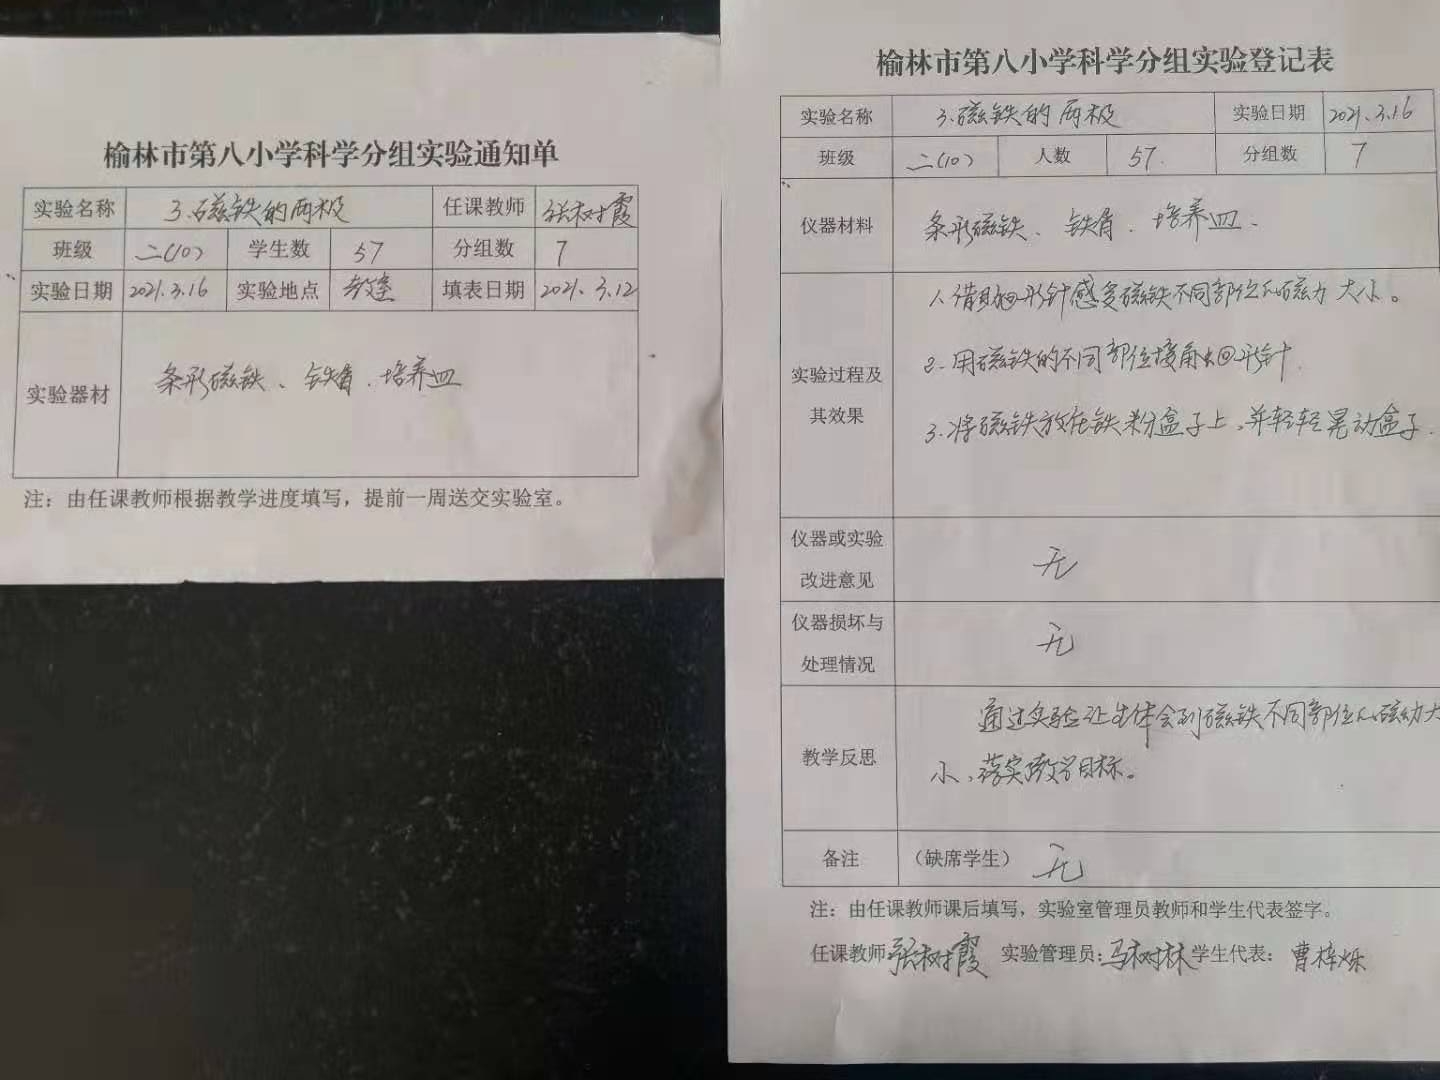 榆林市第八小学科学分组实验通知单
实验名称 3.磁铁的两极 任课教师 张树霞
班级 二(10) 学生数 57 分组数 7
实验日期 2021.3.16 实验地点 教室 填表日期 2021.3.12
实验器材 条形磁铁、铁屑、培养皿
注：由任课教师根据教学进度填写，提前一周送交实验室。
榆林市第八小学科学分组实验登记表
实验名称 3.磁铁的两极 实验日期 2021.3.16
班级 二(10) 人数 57. 分组数 7
仪器材料 条形磁铁、铁屑、培养皿.
实验过程及
其效果
1.借助回形针感受磁铁不同部位的磁力大小。
2.用磁铁的不同部位接触回形针.
3.将磁铁放在铁粉盒子上,并轻轻晃动盒子.
仪器或实验
改进意见
无
仪器损坏与
处理情况
无
教学反思
通过实验让生体会到磁铁不同部位的磁力大
小、落实教学目标。
备注 （缺席学生） 无
注：由任课教师课后填写，实验室管理员教师和学生代表签字。
任课教师 张树霞 实验管理员：马树林 学生代表：曹梓烁